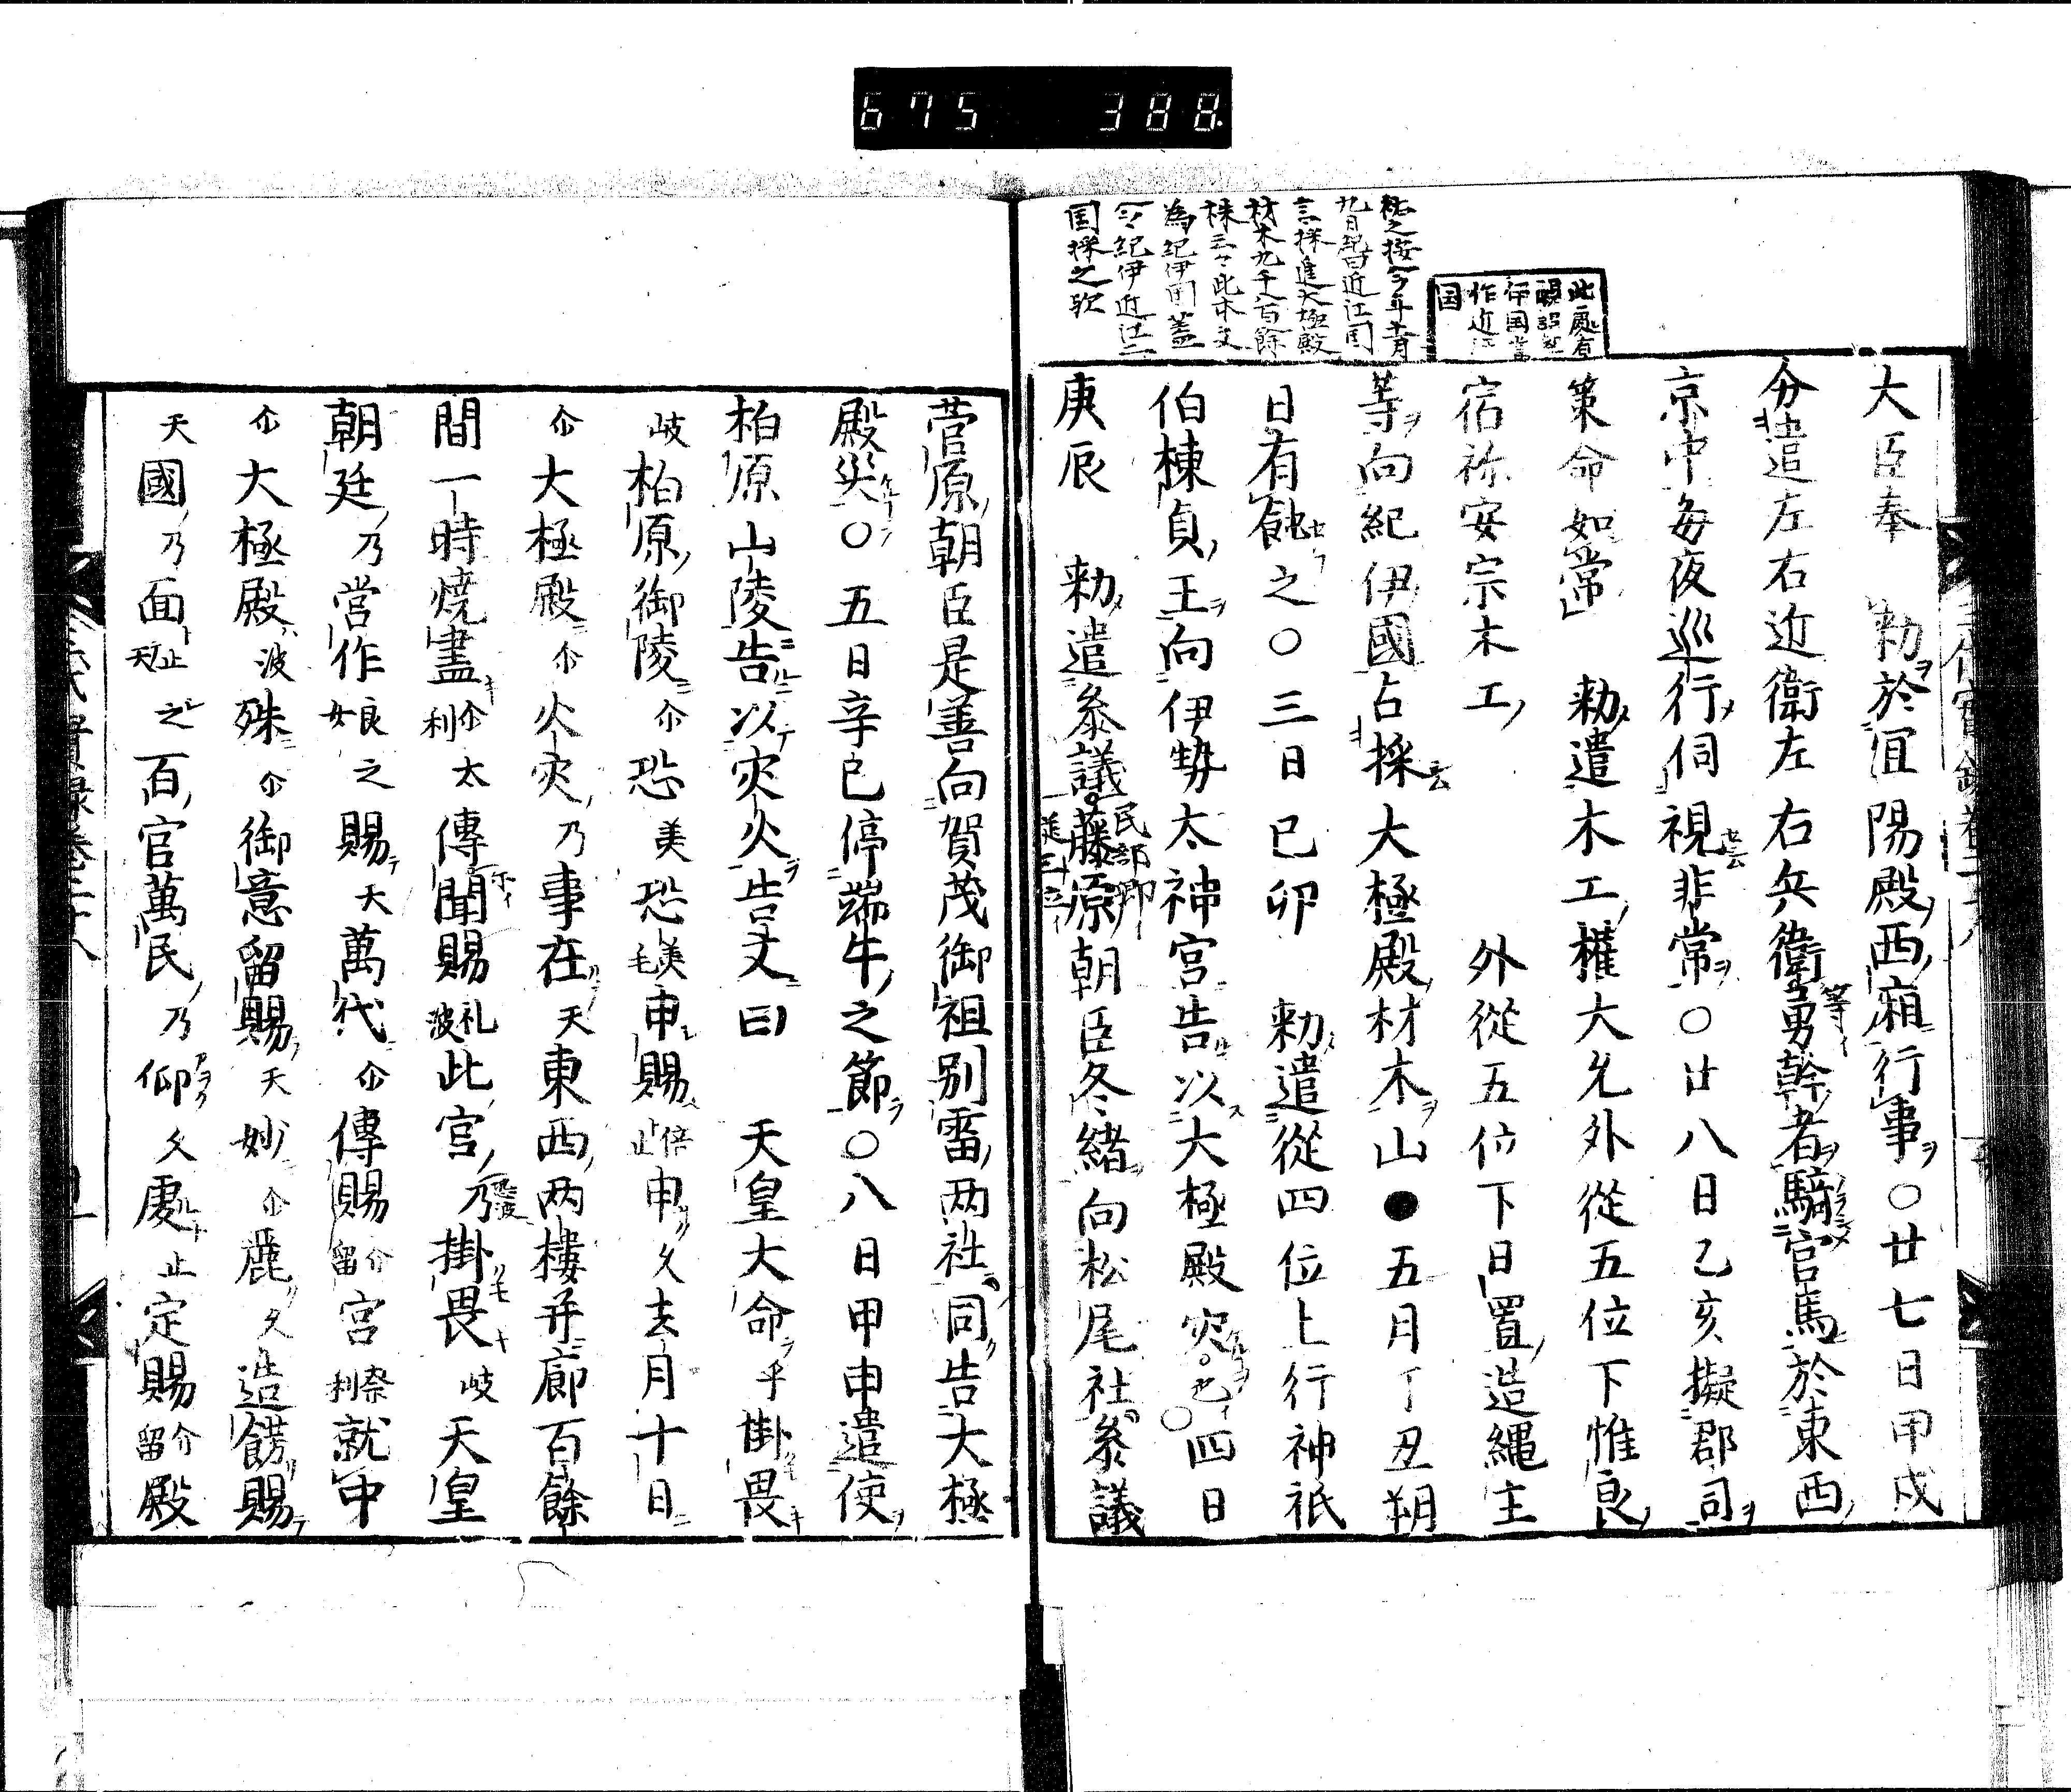 675 388
祐之按今年十一月
九日紀曰近江国
言採進大極殿
材木九千八百餘
株云々此本文
為紀伊国蓋
今紀伊近江二
国採之歟
此處有
作近
国
大臣奉 勑於宜陽殿西廂行事○廿七日甲戌
分遣左右近衛左右兵衛勇幹者騎官馬於東西
京中毎夜巡行伺視非常○廿八日乙亥擬郡司
策命如常 勑遣木工權大允外從五位下惟良
宿祢安宗木工 外從五位下日置造縄主
等向紀伊國占採大極殿材木山●五月丁丑朔
日有蝕之○三日己卯 勑遣從四位上行神祇
伯棟貞王向伊勢太神宮告以大極殿灾也○四日
庚辰 勑遣叅議民部卿藤原朝臣冬緒向松尾社叅議
菅原朝臣是善向賀茂御祖別雷两社同告大極
殿災○五日辛巳停端午之節○八日甲申遣使
柏原山陵告以灾火告文曰 天皇大命乎掛畏
岐柏原御陵尒恐美恐美毛申賜倍止申久去月十日
尒大極殿尒火灾乃事在天東西两樓并廊百餘
間一時焼盡尒太利傳聞賜礼波此宮乃掛畏岐天皇
朝廷乃営作良女之賜天萬代尒傳賜介留宮奈利就中
尒大極殿波殊尒御意留賜天妙尒麗久造餝賜
天國乃面止之天百官萬民乃仰久處止定賜介留殿